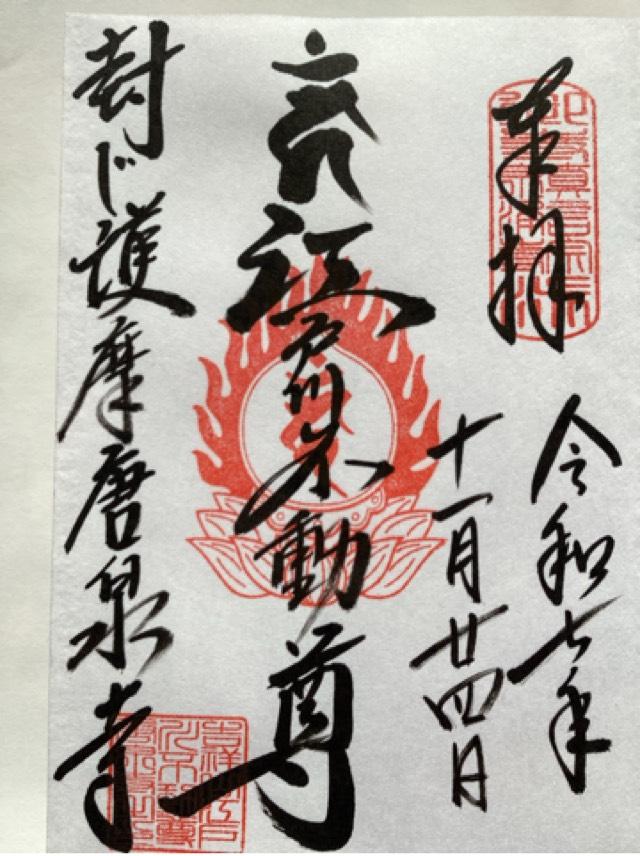 奉拝
令和七年
十一月廿四日
江戸川不動尊
封じ護摩唐泉寺